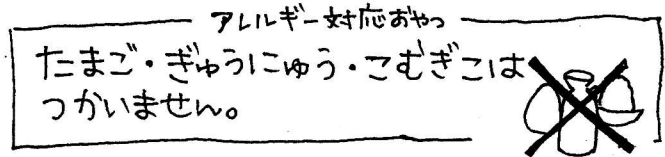 アレルギー対応おやつ
たまご・ぎゅうにゅう・こむぎこは
つかいません。